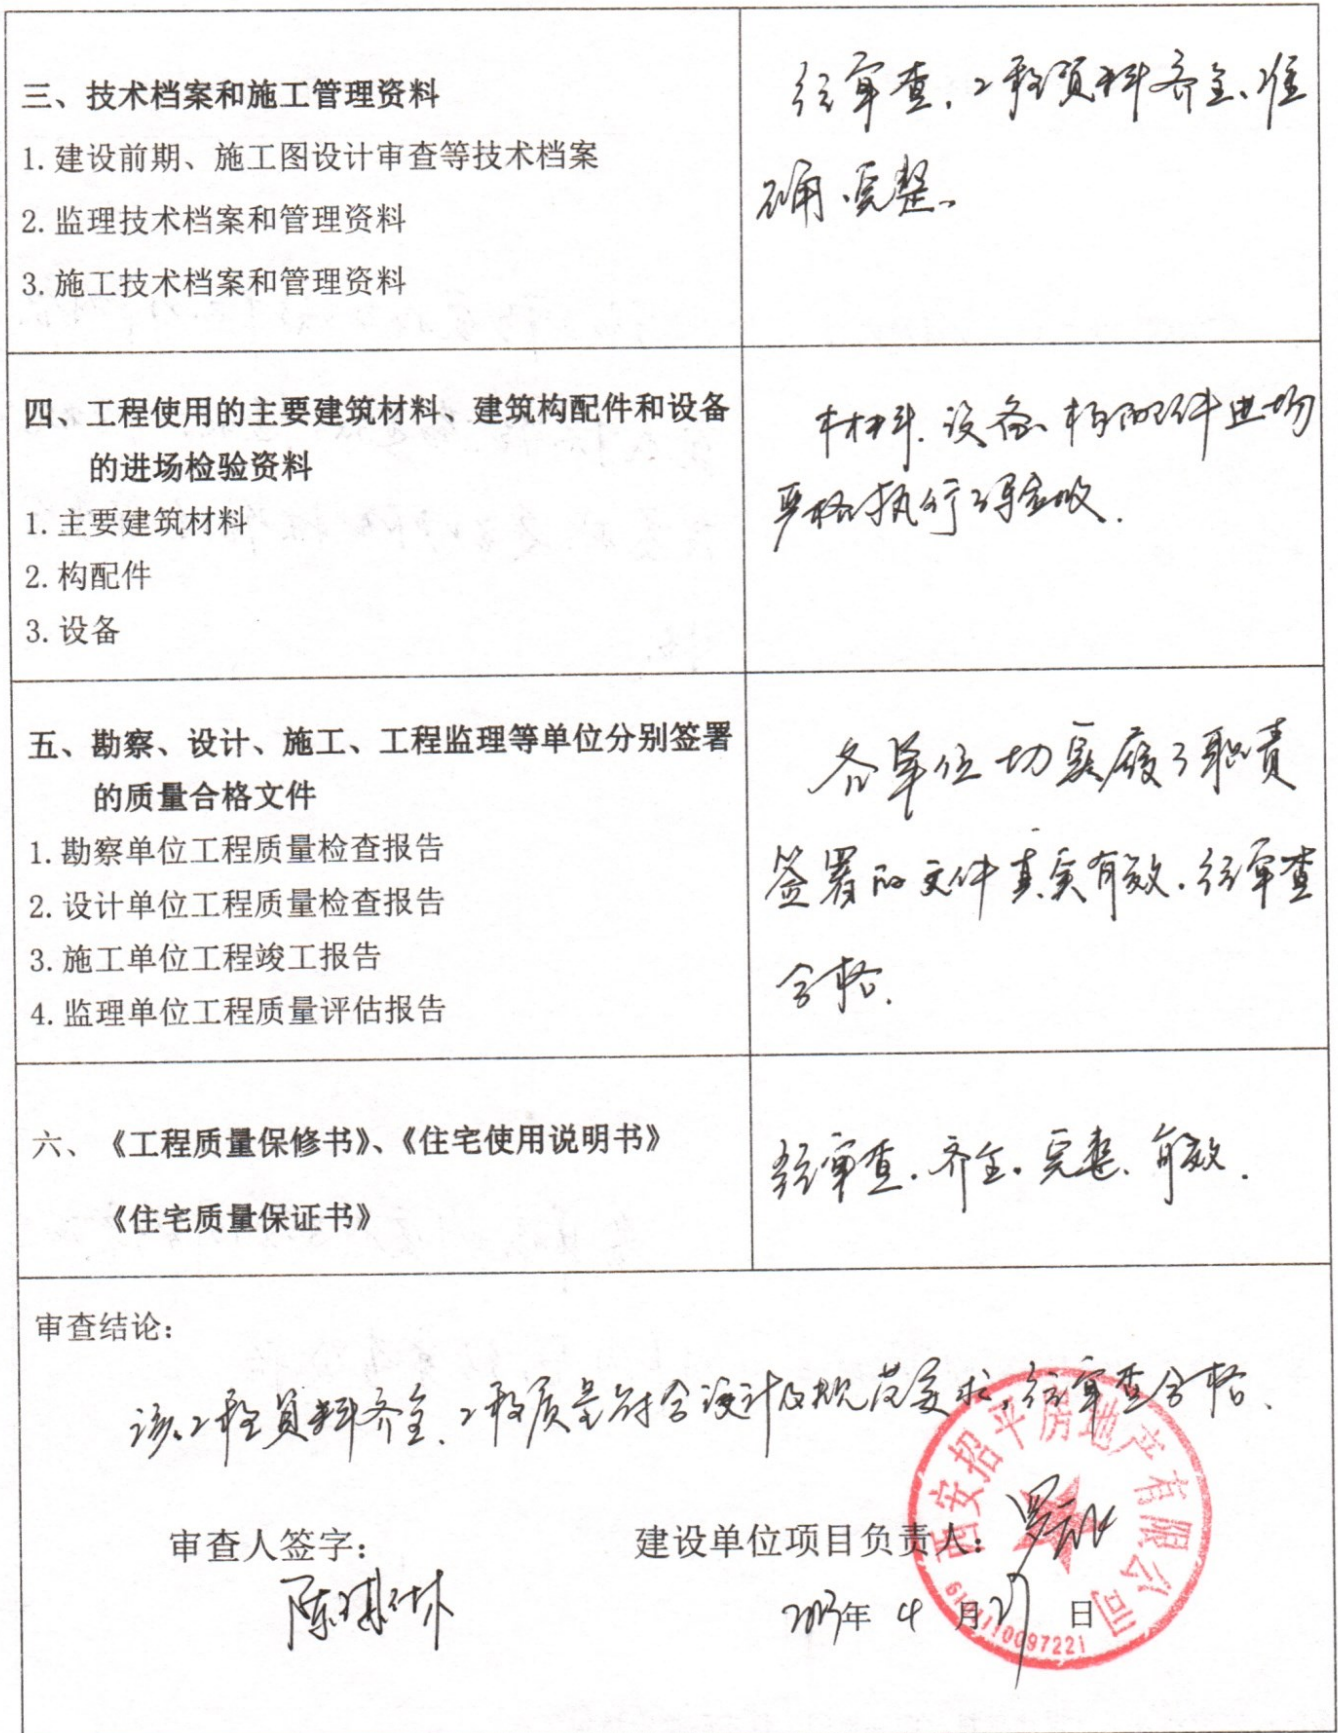 三、技术档案和施工管理资料
1.建设前期、施工图设计审查等技术档案
2.监理技术档案和管理资料
3.施工技术档案和管理资料
经审查,工程资料齐全、准
确、完整。
四、工程使用的主要建筑材料、建筑构配件和设备
的进场检验资料
1.主要建筑材料
2.构配件
3.设备
材料、设备、构配件进场
严格执行了验收.
五、勘察、设计、施工、工程监理等单位分别签署
的质量合格文件
1.勘察单位工程质量检查报告
2.设计单位工程质量检查报告
3.施工单位工程竣工报告
4.监理单位工程质量评估报告
各单位切实履了职责
签署的文件真实有效.经审查
合格.
六、《工程质量保修书》、《住宅使用说明书》
《住宅质量保证书》
经审查.齐全.完整、有效.
审查结论:
该工程资料齐全、工程质量符合设计及规范要求,经审查合格.
审查人签字:
建设单位项目负责人:
年 4 月 日
西安招平房地产有限公司